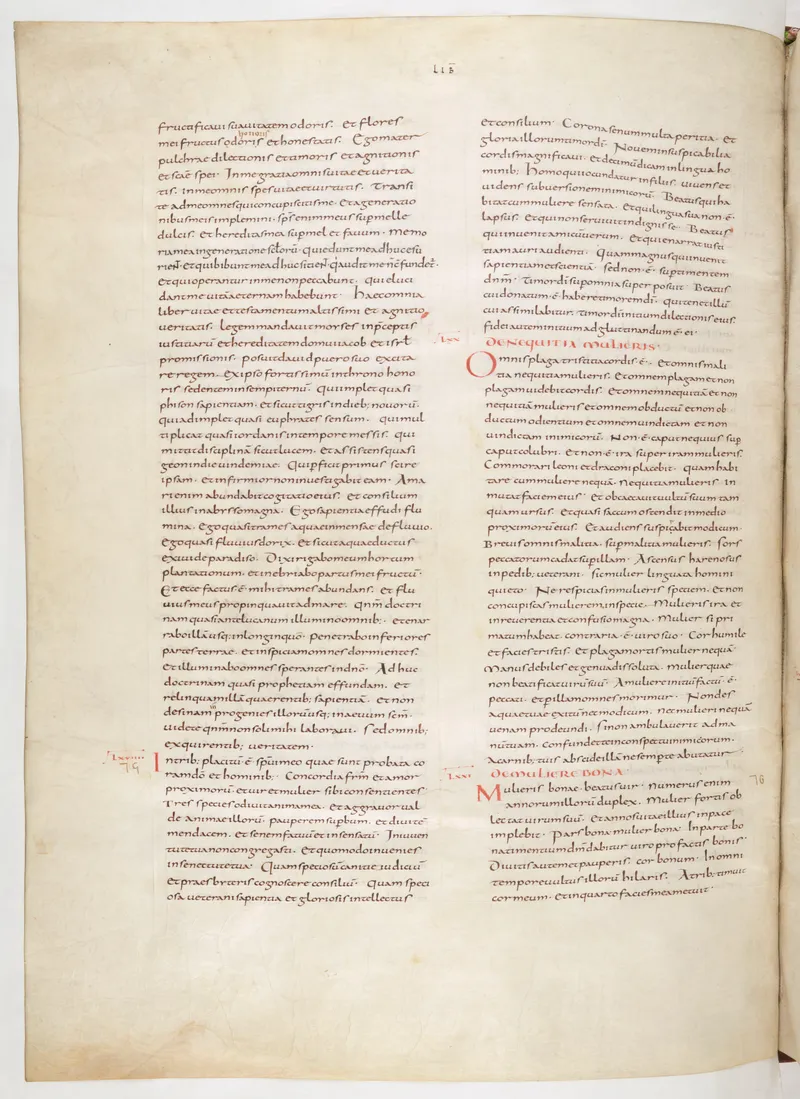 LIB̄
fructificaui suauitatem odoris. et flores
mei fructus odoris et honestatis. Ego mater
honoris
pulchrae dilectionis et amoris et agnitionis
et sc̄ae spei. In me gratia omnis uitae et uerita
tis. in me omnis spes uitae et uirtutis. Transi
te ad me omnes qui concupiscitis me. et a generatio
nibus meis implemini. sp̄s enim meus sup melle
dulcis. et hereditas mea sup mel et fauum. Memo
ria mea in generatione sc̄lorū. qui edunt me adhuc esu
rient. et qui bibunt me adhuc sitient. qui audit me n̄ c̄fundet̄.
et qui operantur in me non peccabunt. qui eluci
dant me uitā aeternam habebunt. Haec omnia
liber uitae et testamentum altissimi et agnitio
ueritatis. legem mandauit moyses in p̄ceptis
iustitiarū et hereditatem domui iacob et isrl̄
promissionis. posuit dauid puero suo excita
re regem. ex ipso fortissimū in throno hono
ris sedentem in sempiternū. qui implet quasi
phison sapientiam. et sicut tigris in dieb; nouorū.
qui adimplet quasi euphrates sensum. qui mul
tiplicat quasi iordanis in tempore messis. qui
mittat disciplinā sicut lucem. et assistens quasi
geon in die uindemiae. Qui p̄ficit primus scire
ipsam. et infirmior non inuestigabit eam. A ma
ri enim abundabit cogitatio eius. et consilium
illius in abysso magna. Ego sapientia effudi flu
mina. ego quasi trames aquae inmensae de fluuio.
Ego quasi fluuius dorix. et sicut aquaeductus
exiui de paradiso. Dixi rigabo meum hortum
plantationum. et inebriabo partus mei fructū.
Et ecce factus ē mihi trames abundans. et flu
uius meus propinquauit ad mare. qn̄m doctri
nam quasi antelucanum illumino omnib;. et enar
rabo illā usq; in longinquo. penetrabo inferiores
partes terrae. et inspiciam omnes dormientes.
et illuminabo omnes sperantes in dn̄o. Adhuc
doctrinam quasi prophetiam effundam. et
relinquam illā quaerentib; sapientiā. et non
desinam in progenies illorū usq; in aeuum sc̄m.
uidete qn̄m non soli mihi laboraui. sed omnib;
exquirentib; ueritatem.
LXVIIII
Intrib; placitū ē sp̄ui meo quae sunt probata co
76
ram dō et hominib;. Concordia fr̄m et amor
proximorū. et uir et mulier sibi consentientes
Tres species odiuit anima mea. et aggrauor ual
de animae illorū. pauperem supbum. et diuitē
mendacem. et senem fatuū et insensatū. In iuuen
tute tua non congregasti. et quomodo inuenies
in senectute tua. Quam speciosū canitiei iudiciū
et praesbyteris cognoscere consiliū. Quam speci
osa ueterani sapientia et gloriosis intellectus
et consilium. Corona senum multa peritia. et
gloria illorum timor dī. Nouem insuspicabilia
cordis magnificaui. et decimū dicam in lingua ho
minib;. Homo qui iocundatur in filiis. uiuens et
uidens subuersionem inimicorū. Beatus qui ha
bitat cum muliere sensata. et qui lingua sua non ē
lapsus. et qui non seruiuit indignis se. Beatus
qui inuenit amicū uerum. et qui enarrat iusti
tiam auri audienti. Quam magnus qui inuenit
sapientiam et scientiā. sed non ē sup timentem
dn̄m. Timor dī sup omnia superposuit. Beatus
cui donatum ē habere timorem dī. qui tenet illū
cui adsimilabitur. timor dī initium dilectionis eius.
fidei autem initium adglutinandum ē ei.
LXX DE NEQUITIA MULIERIS.
Omnis plaga tristitia cordis ē. et omnis mali
tia nequitia mulieris. et omnem plagam et non
plagam uidebit cordis. et omnem nequitiā et non
nequitiā mulieris et omnem obductū et non ob
ductum odientium et omnem uindictam et non
uindictam inimicorū. Non ē caput nequius sup
caput colubri. et non ē ira super iram mulieris.
Commorari leoni et draconi placebit. quam habi
tare cum muliere nequā. Nequitia mulieris in
mutat faciem eius. et obcaecat uultū suum tam
quam ursus. et quasi saccum ostendit in medio
proximorū eius. et audiens suspirabit modicum.
Breuis omnis malitia sup malitia mulieris. sors
peccatorum cadat sup illam. Ascensus harenosus
in pedib; ueterani. sic mulier linguata homini
quieto. Ne respicias in mulieris speciem. et non
concupiscas mulierem in specie. Mulieris ira et
inreuerentia et confusio magna. Mulier si pri
matum habeat. contraria ē uiro suo. Cor humile
et facies tristis. et plaga mortis mulier nequā.
Manus debiles et genua dissoluta. mulier quae
non beatificat uirū suū. A muliere initiū factū ē
peccati. et p illam omnes morimur. Non des
aquae tuae exitū nec modicum. nec mulieri nequā
ueniam prodeundi. si non ambulauerit ad ma
nū tuam. confundet te in conspectu inimicorum.
A carnib; tuis abscide illā ne sempe abutatur
LXXI DE MULIERE BONA 76
Mulieris bonae beatus uir. numerus enim
annorum illorū duplex. Mulier fortis ob
lectat uirum suū. et annos uitae illius in pace
implebit. Pars bona mulier bona. In parte bo
na timentium dm̄ dabitur uiro pro factis bonis.
Diuitis autem et pauperis. cor bonum. In omni
tempore uultus illorū hilaris. A trib; timuit
cor meum. et in quarto facies mea metuit.